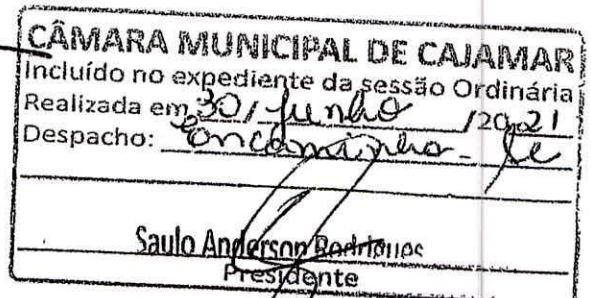 CÂMARA MUNICIPAL DE CAJAMAR
Incluído no expediente da sessão Ordinária
Realizada em 30/ Junho /2021
Despacho: Encaminha-se
Saulo Anderson Rodrigues
Presidente